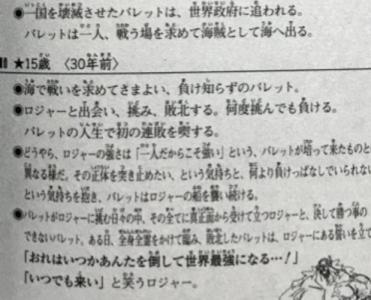 ●一国を壊滅させたバレットは、世界政府に追われる。
バレットは一人、戦う場を求めて海賊として海へ出る。
★15歳 〈30年前〉
●海で戦いを求めてさまよい、負け知らずのバレット。
●ロジャーと出会い、挑み、敗北する。何度挑んでも負ける。
バレットの人生で初の連敗を喫する。
●どうやら、ロジャーの強さは「一人だからこそ強い」という、バレットが培って来たものと
異なる様だ。その正体を突き止めたい、という気持ちと、何より負けっぱなしでいられない
という気持ちを抱き、バレットはロジャーの船を襲い続ける。
●バレットがロジャーに挑む日々の中、その全てに真正面から受けて立つロジャーと、決して勝つ事の
できないバレット。ある日、全身全霊をかけて臨み、敗北したバレットは、ロジャーにある誓いを立て
「おれはいつかあんたを倒して世界最強になる…!」
「いつでも来い」と笑うロジャー。